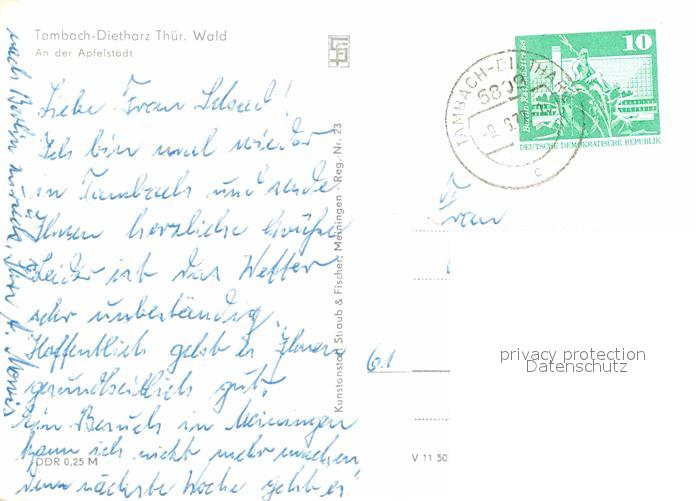 Tambach-Dietharz Thür. Wald
An der Apfelstädt
Liebe Frau
Ich bin mal wieder
in Tambach und sende
Ihnen herzliche Grüße
Leider ist das Wetter
sehr unbeständig.
Hoffentlich geht es Ihnen
gesundheitlich gut.
Ein Besuch in Meiningen
kann ich nicht mehr machen
denn nächste Woche geht es
nach Berlin zurück. Ihre
DDR 0,25 M
Kunstanstalt Straub & Fischer, Meiningen Reg.-Nr. 23
V 11 50
TAMBACH-DIETHARZ
c
10
DEUTSCHE DEMOKRATISCHE REPUBLIK
Frau
61
privacy protection
Datenschutz